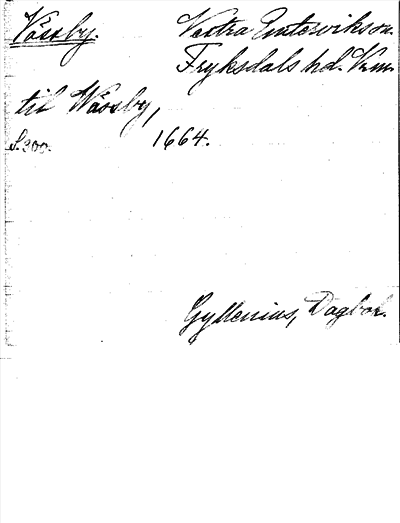 Våsby. Västra Emterviks sn.
Fryksdals hd. Vrm.
til Wåsby,
S. 300. 1664.
Gyllenius, Dagbok.